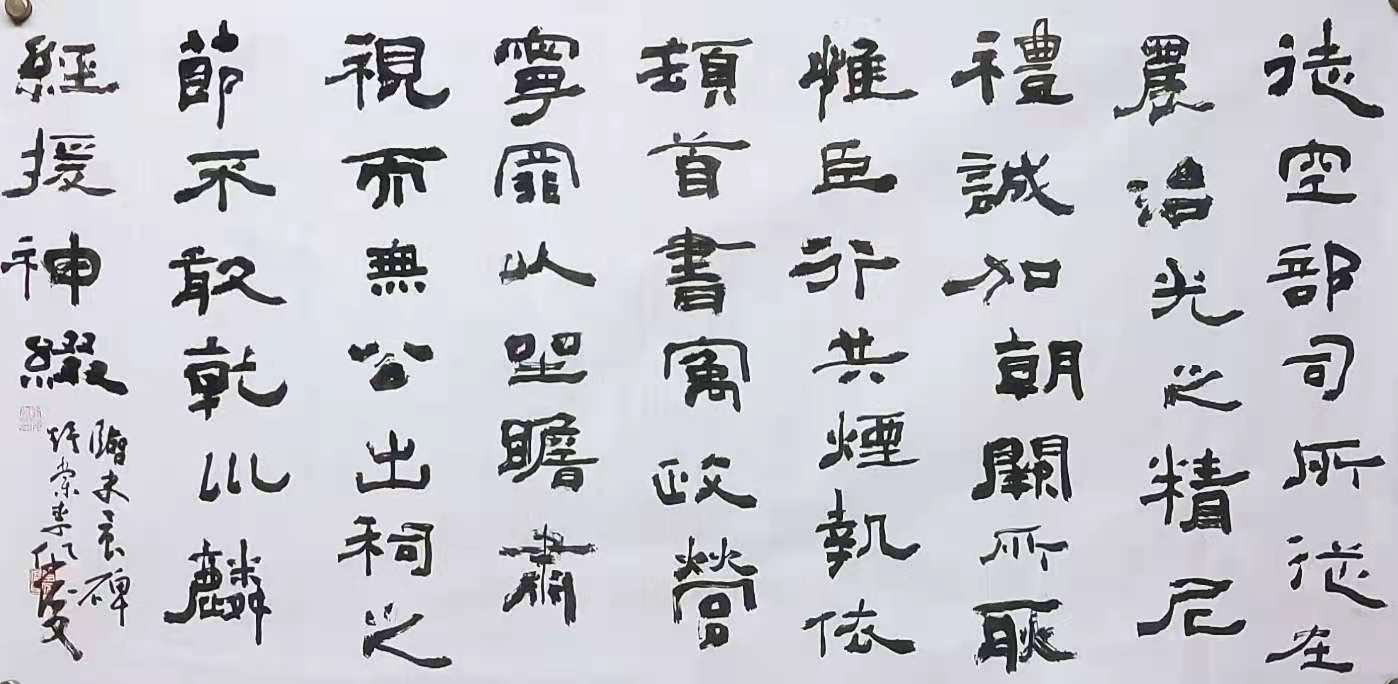 徒空部司所從在
農治光之精尼
禮誠加朝闕所耽
惟臣行共煙執依
頓首書寓政營
寧罪以望瞻肅
視而無公出祠之
節不敢乾川麟
經援神綴
臨史晨碑